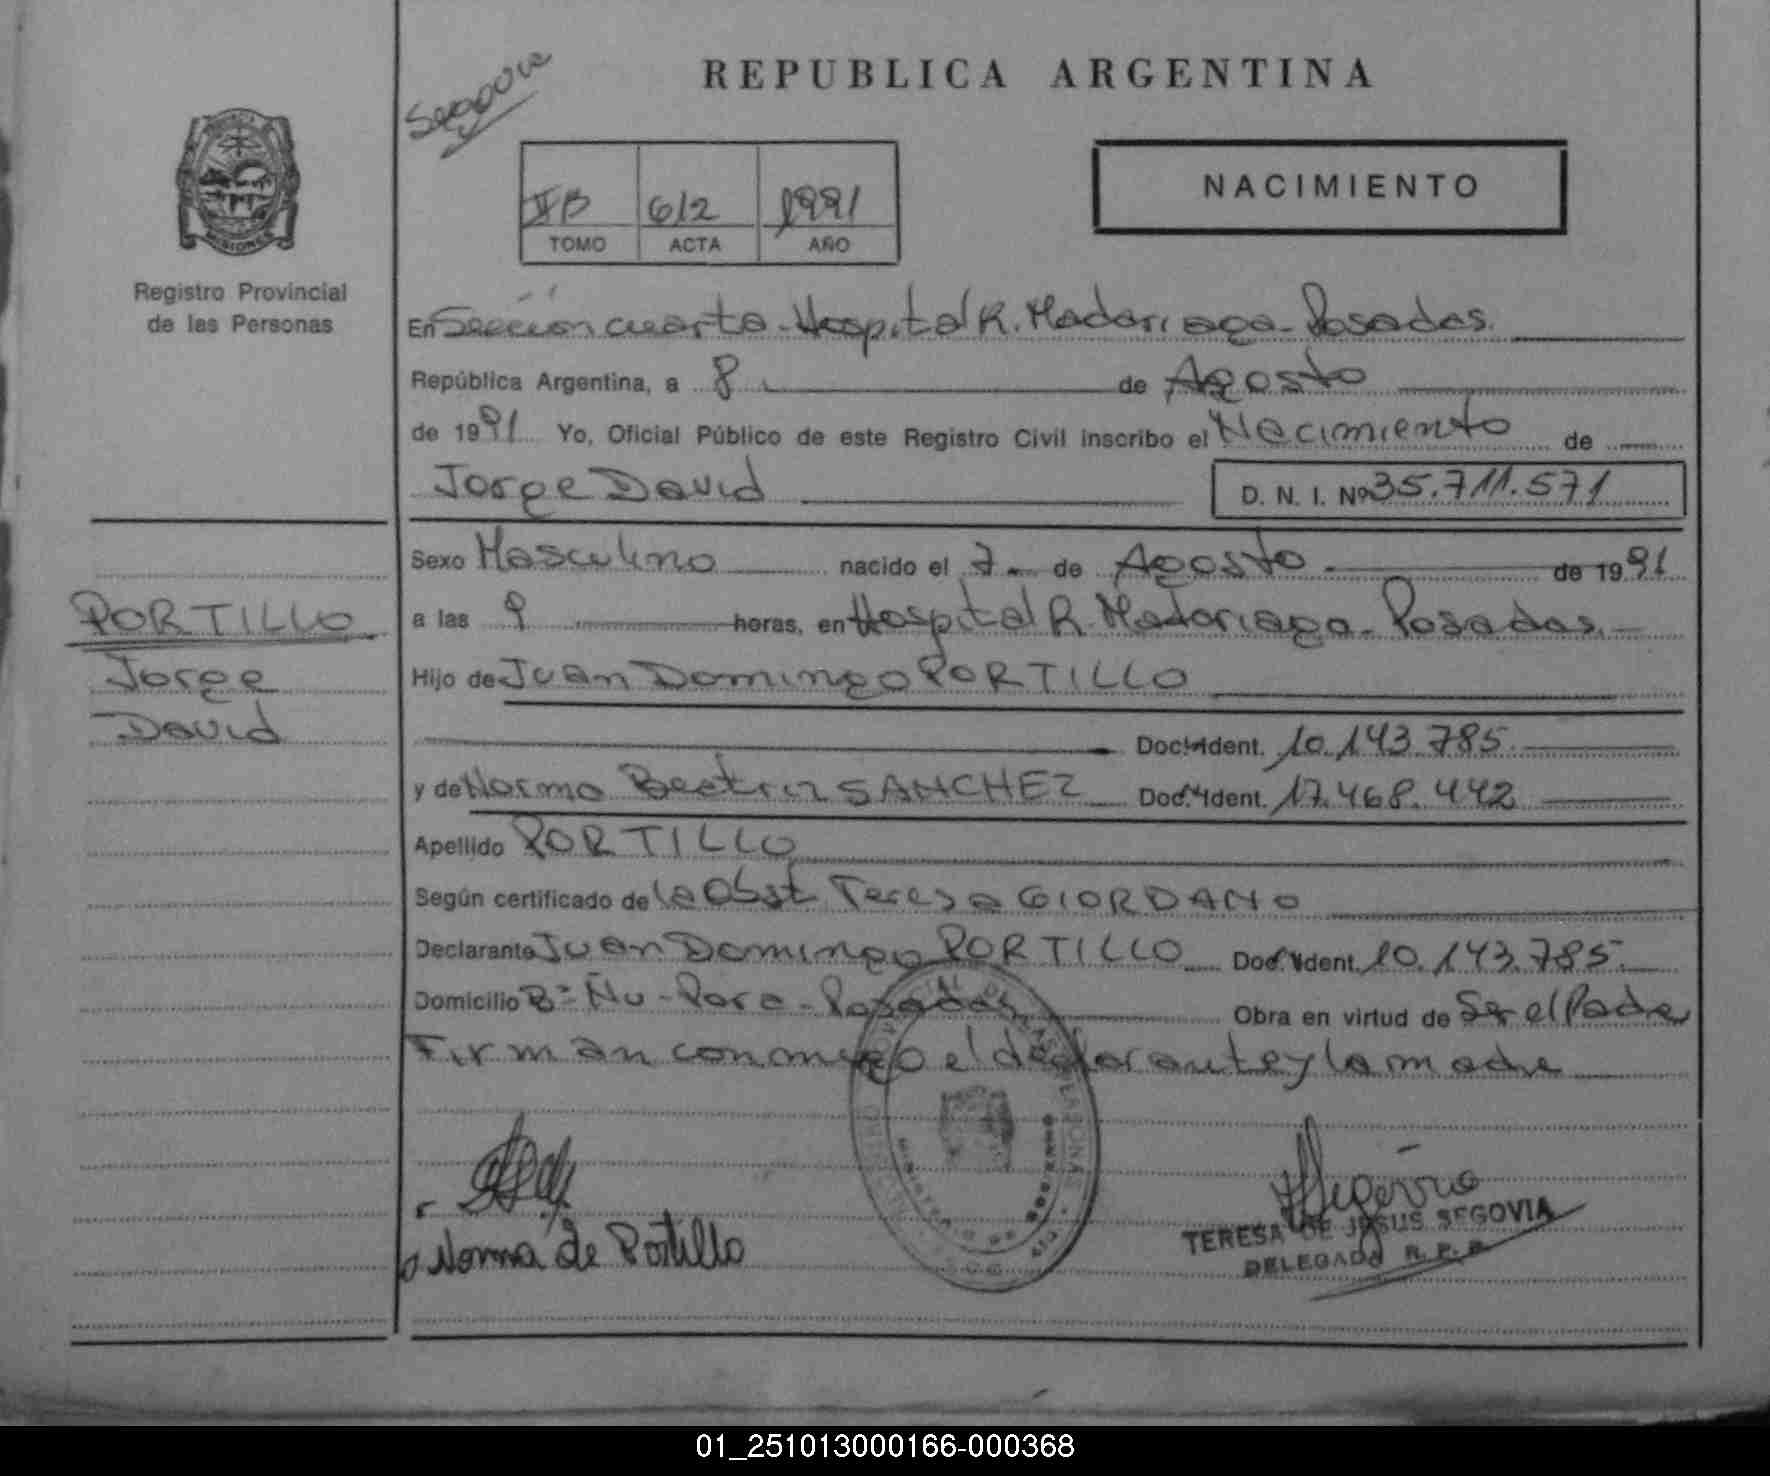 REPUBLICA ARGENTINA
IIB 612 1991
TOMO ACTA AÑO
NACIMIENTO
MISIONES
Registro Provincial
de las Personas
En Sección cuarta - Hospital R. Madariaga - Posadas.
República Argentina, a 8 de Agosto
de 1991 Yo, Oficial Público de este Registro Civil inscribo el Nacimiento de
Jorge David D. N. I. Nº 35.711.571
Sexo Masculino nacido el 7 de Agosto de 1991
PORTILLO
Jorge
David
a las 9 horas, en Hospital R. Madariaga - Posadas.
Hijo de Juan Domingo PORTILLO
Doc. Ident. 10.143.785
y de Norma Beatriz SANCHEZ Doc. Ident. 17.468.442
Apellido PORTILLO
Según certificado de la Obst. Teresa GIORDANO
Declarante Juan Domingo PORTILLO Doc. Ident. 10.143.785
Domicilio Bº Ñu - Pora - Posadas Obra en virtud de Ser el Padre
Firman conmigo el declarante y la madre
Norma de Portillo
TERESA DE JESUS SEGOVIA
DELEGADA R. P. P.
01_251013000166-000368